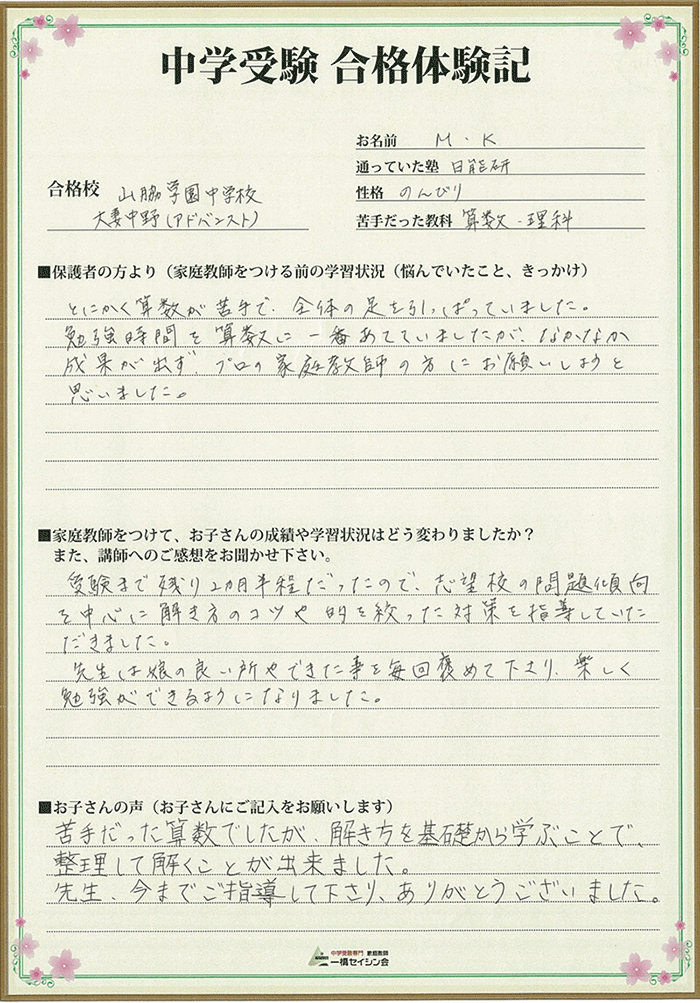 中学受験 合格体験記
お名前 M・K
通っていた塾 日能研
合格校 山脇学園中学校
大妻中野(アドバンスト)
性格 のんびり
苦手だった教科 算数・理科
■保護者の方より(家庭教師をつける前の学習状況(悩んでいたこと、きっかけ)
とにかく算数が苦手で、全体の足を引っぱっていました。
勉強時間を算数に一番あてていましたが、なかなか
成果が出ず、プロの家庭教師の方にお願いしようと
思いました。
■家庭教師をつけて、お子さんの成績や学習状況はどう変わりましたか?
また、講師へのご感想をお聞かせ下さい。
受験まで残り2カ月半程だったので、志望校の問題傾向
を中心に解き方のコツや的を絞った対策を指導していた
だきました。
先生は娘の良い所やできた事を毎回褒めて下さり、楽しく
勉強ができるようになりました。
■お子さんの声(お子さんにご記入をお願いします)
苦手だった算数でしたが、解き方を基礎から学ぶことで、
整理して解くことが出来ました。
先生、今までご指導して下さり、ありがとうございました。
中学受験専門 家庭教師
一橋セイシン会